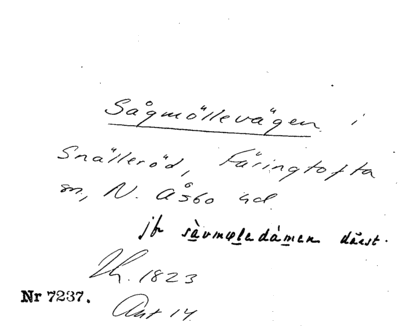 Sågmöllevägen i
Snälleröd, Färingtofta
sn, N. Åsbo hd.
jfr sàvmøledámen därst.
1823
Nr 7237.
Ant 14.